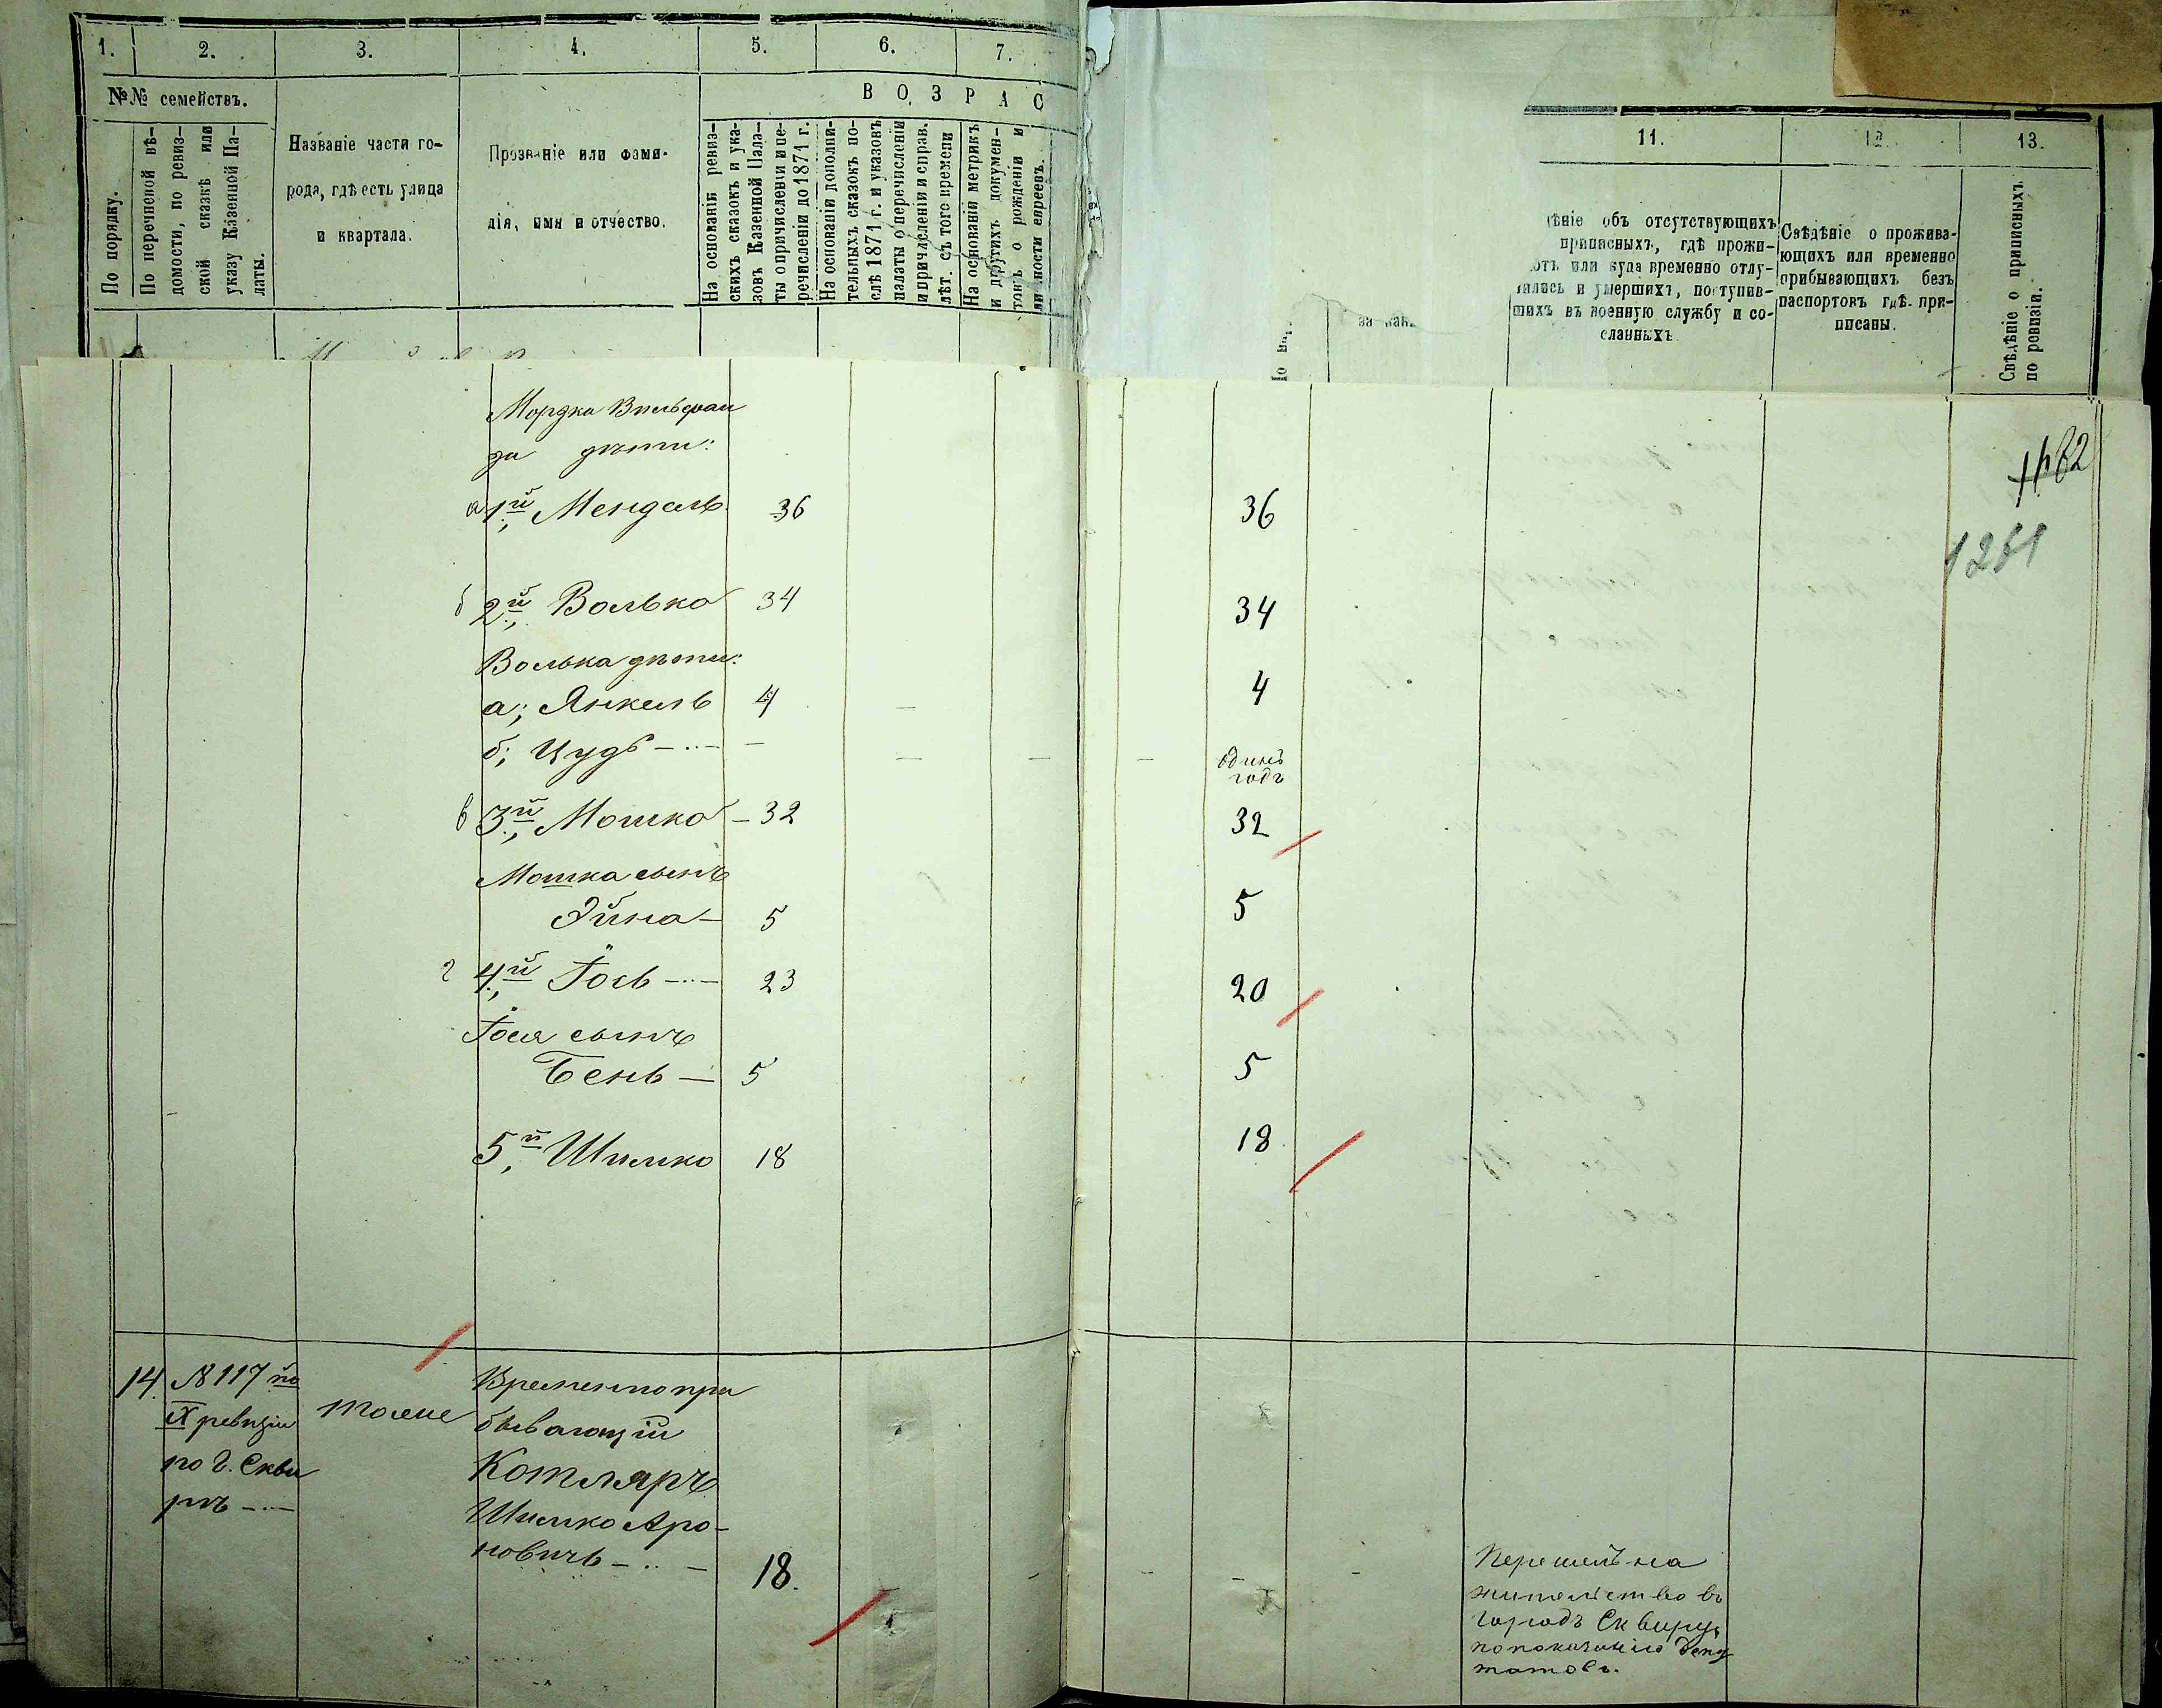 1. 2. 3. 4. 5. 6. 7.
№№ семействъ.
По порядку.
По перечневой вѣ-
домости, по ревиз-
ской сказкѣ или
указу Казенной Па-
латы.
Названіе части го-
рода, гдѣ есть улица
и квартала.
Прозваніе или фами-
лія, имя и отчество.
ВОЗРАС
На основаніи ревиз-
скихъ сказокъ и ука-
зовъ Казенной Пала-
ты о причисленіи и пе-
речисленіи до 1871 г.
На основаніи дополни-
тельныхъ сказокъ по-
слѣ 1871 г. и указовъ
палаты о перечисленіи
и причисленіи и справ.
лѣт. съ того времени
На основаніи метрикъ
и другихъ докумен-
товъ о рожденіи и
личности евреевъ.
11. 12. 13.
ѣніе объ отсутствующихъ
приписныхъ, гдѣ прожи-
ютъ или куда временно отлу-
чились и умершихъ, поступив-
шихъ въ военную службу и со-
сланныхъ
Свѣдѣніе о прожива-
ющихъ или временно
прибывающихъ безъ
паспортовъ гдѣ при-
писаны.
Свѣдѣніе о приписныхъ
по ревизіи.
Мордка Вильфан
да дѣти:
а 1й Мендель 36 36
1261
б 2й Волько 34 34
Волька дѣти:
а; Янкель 4 4
б; Цудь — — один годъ
в 3й Мошко — 32 32
Мошка сынъ
Эйна — 5 5
г 4й Іось — 23 20
Іося сынъ
Бень — 5 5
5й Шимко 18 18
14. № 117 по
IX ревизіи
по г. Сквы
рѣ —
тоже
Временно при
бывающій
Котляръ
Шимко Аро-
новичъ — 18.
Перешелъ на
жительство въ
городъ Сквиру,
по показанію депу
татовъ.